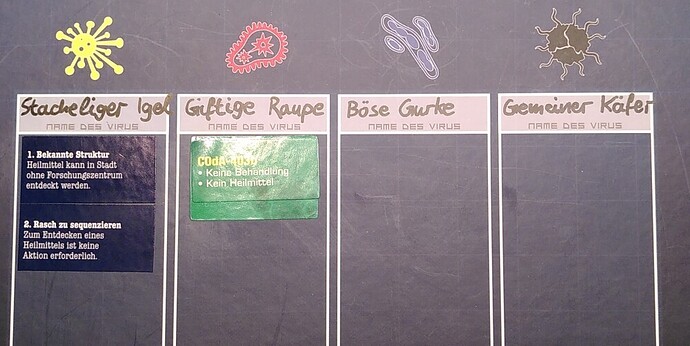 Stacheliger Igel
NAME DES VIRUS
1. Bekannte Struktur
Heilmittel kann in Stadt
ohne Forschungszentrum
entdeckt werden.
2. Rasch zu sequenzieren
Zum Entdecken eines
Heilmittels ist keine
Aktion erforderlich.
Giftige Raupe
NAME DES VIRUS
COdA-403b
• Keine Behandlung
• Kein Heilmittel
Böse Gurke
NAME DES VIRUS
Gemeiner Käfer
NAME DES VIRUS